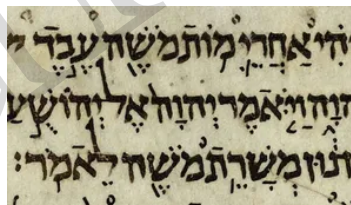 וַיְהִי אַחֲרֵי מוֹת מֹשֶׁה עֶבֶד
יְהוָה וַיֹּאמֶר יְהוָה אֶל יְהוֹשֻׁעַ
נוּן מְשָׁרֵת מֹשֶׁה לֵאמֹר׃